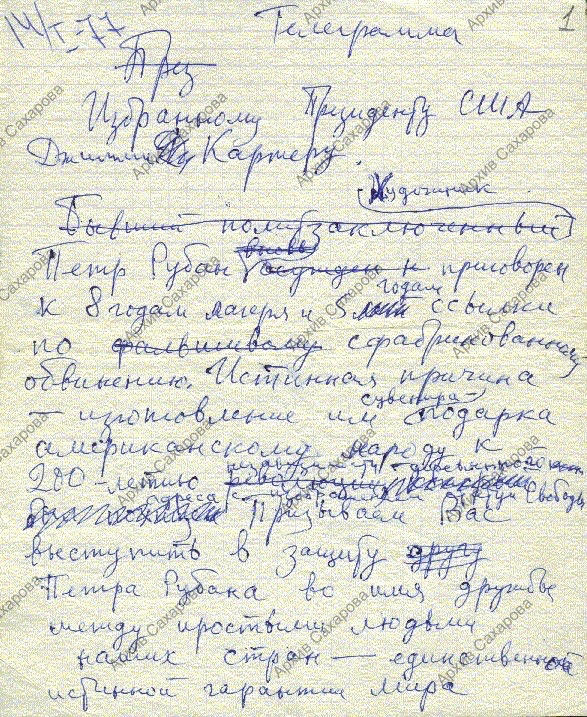 14/I-77 Телеграмма 1
През
Избранному Президенту США
Джимми Картеру.
Художник
Бывший политзаключенный
вновь
Петр Рубан осужден и приговорен
годам
к 8 годам лагеря и 5 лет ссылки
по фальшивому сфабрикованному
обвинению. Истинная причина
сувенира
— изготовление им подарка
американскому народу к
независимости
200-летию революции
Свободы
Призываем Вас
выступить в защиту другу
Петра Рубана во имя дружбы
между простыми людьми
наших стран — единственной
истинной гарантии мира
Архив Сахарова